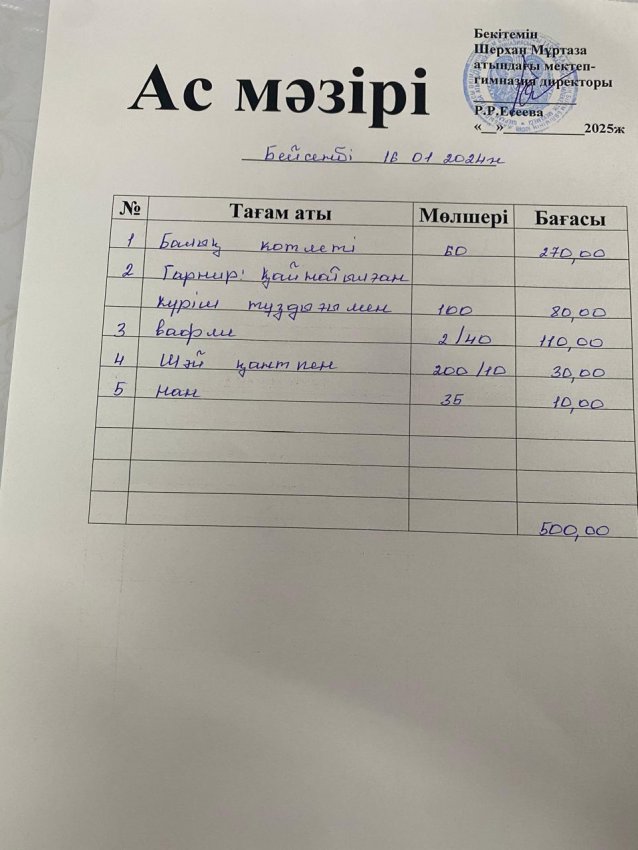 Бекітемін
Шерхан Мұртаза
атындағы мектеп-
гимназия директоры
Р.Р.Есеева
«__»____________2025ж
Ас мәзірі
Бейсенбі 16 01 2024ж
№ Тағам аты Мөлшері Бағасы
1 Балық котлеті 60 270,00
2 Гарнир: қайнатылған
күріш тұздығымен 100 80,00
3 вафли 2/40 110,00
4 Шәй қантпен 200/10 30,00
5 нан 35 10,00
500,00